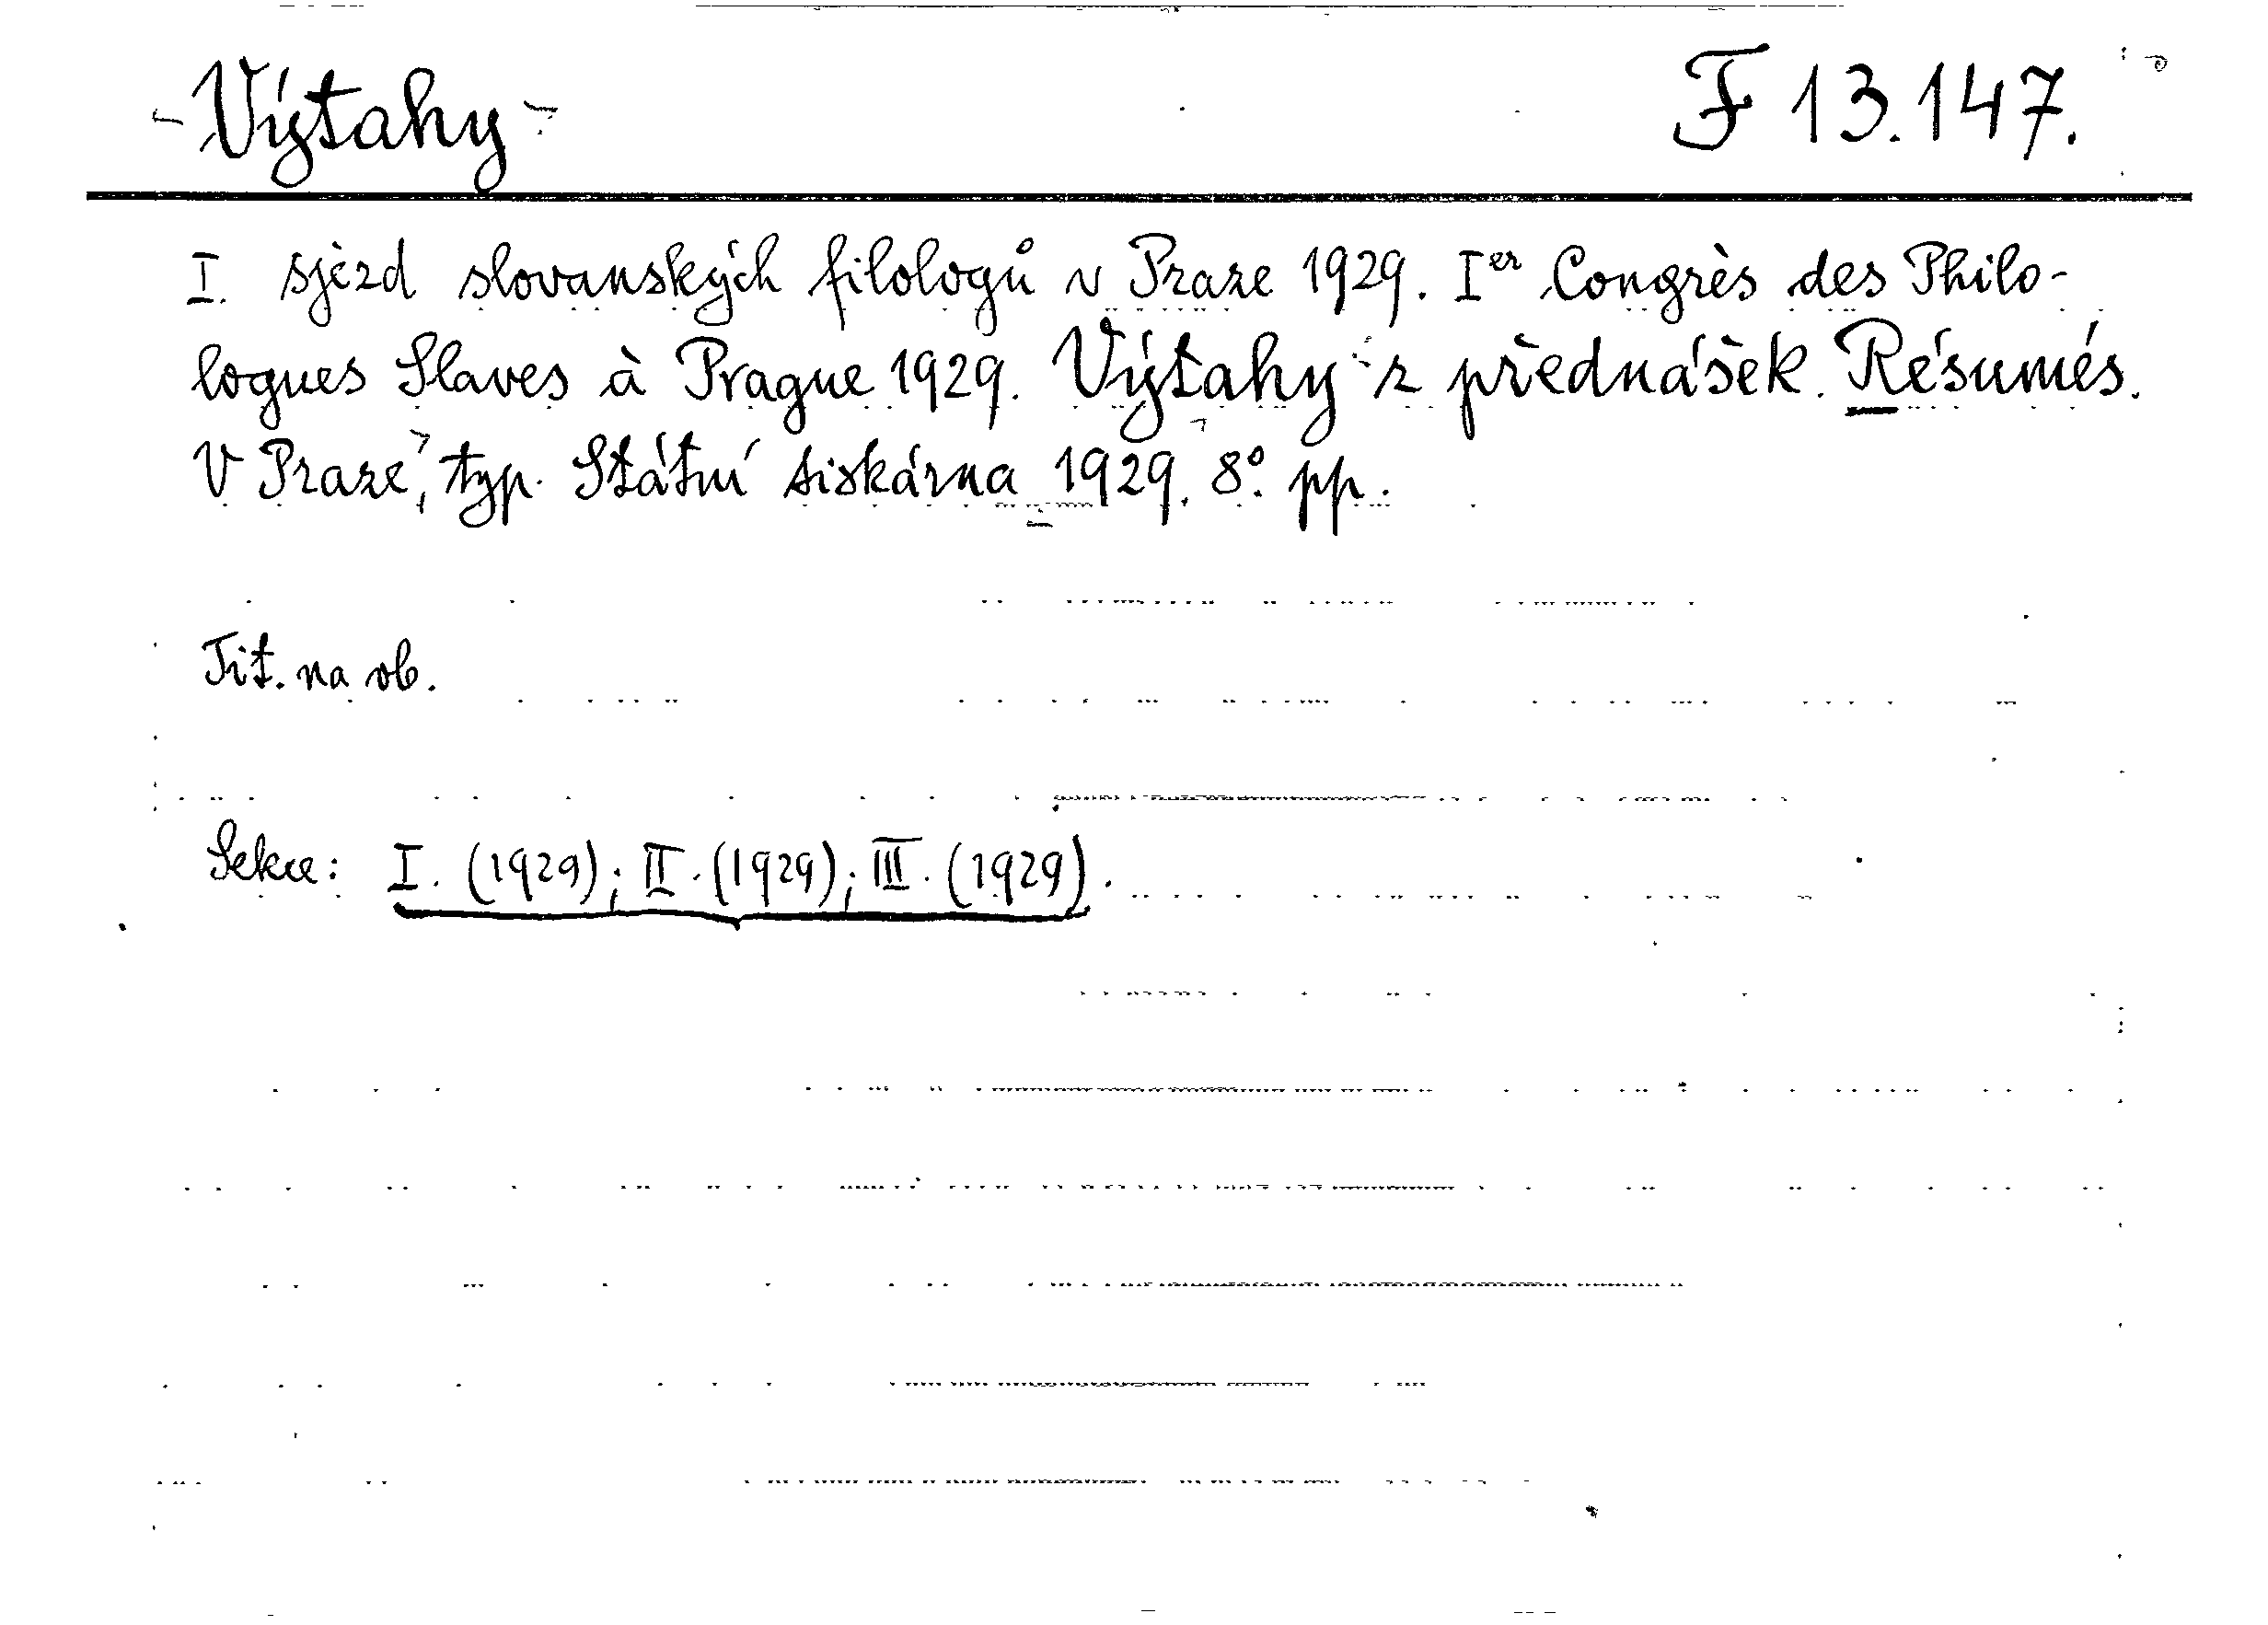 Výtahy F 13.147.
I. sjezd slovanských filologů v Praze 1929. Ier Congrès des Philo-
logues Slaves à Prague 1929. Výtahy z přednášek. Résumés.
V Praze, typ. Státní tiskárna 1929. 8°. pp.
Tit. na ob.
Sekce: I. (1929); II. (1929); III. (1929).